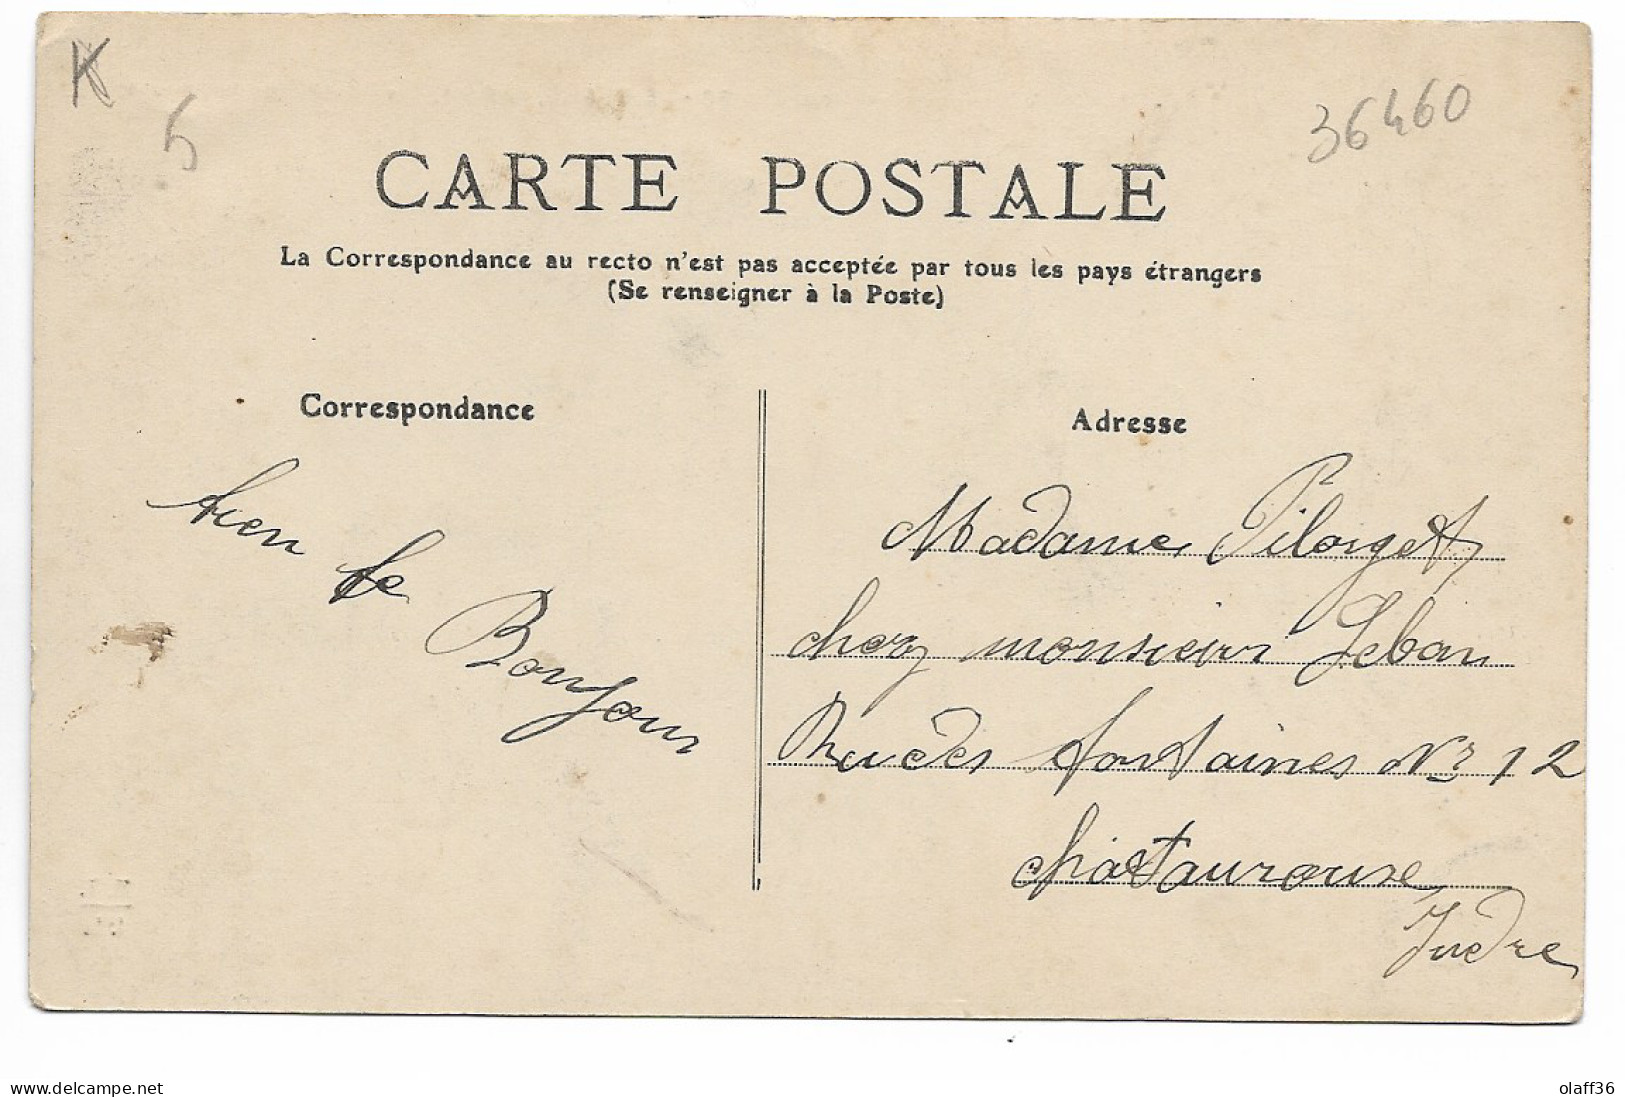 K
5
36460
CARTE POSTALE
La Correspondance au recto n'est pas acceptée par tous les pays étrangers
(Se renseigner à la Poste)
Correspondance
bien le
Bonjour
Adresse
Madame Pilorget
chez monsieur Leban
Rue des fontaines Nr 12
chataurouxe
Indre
www.delcampe.net
olaff36